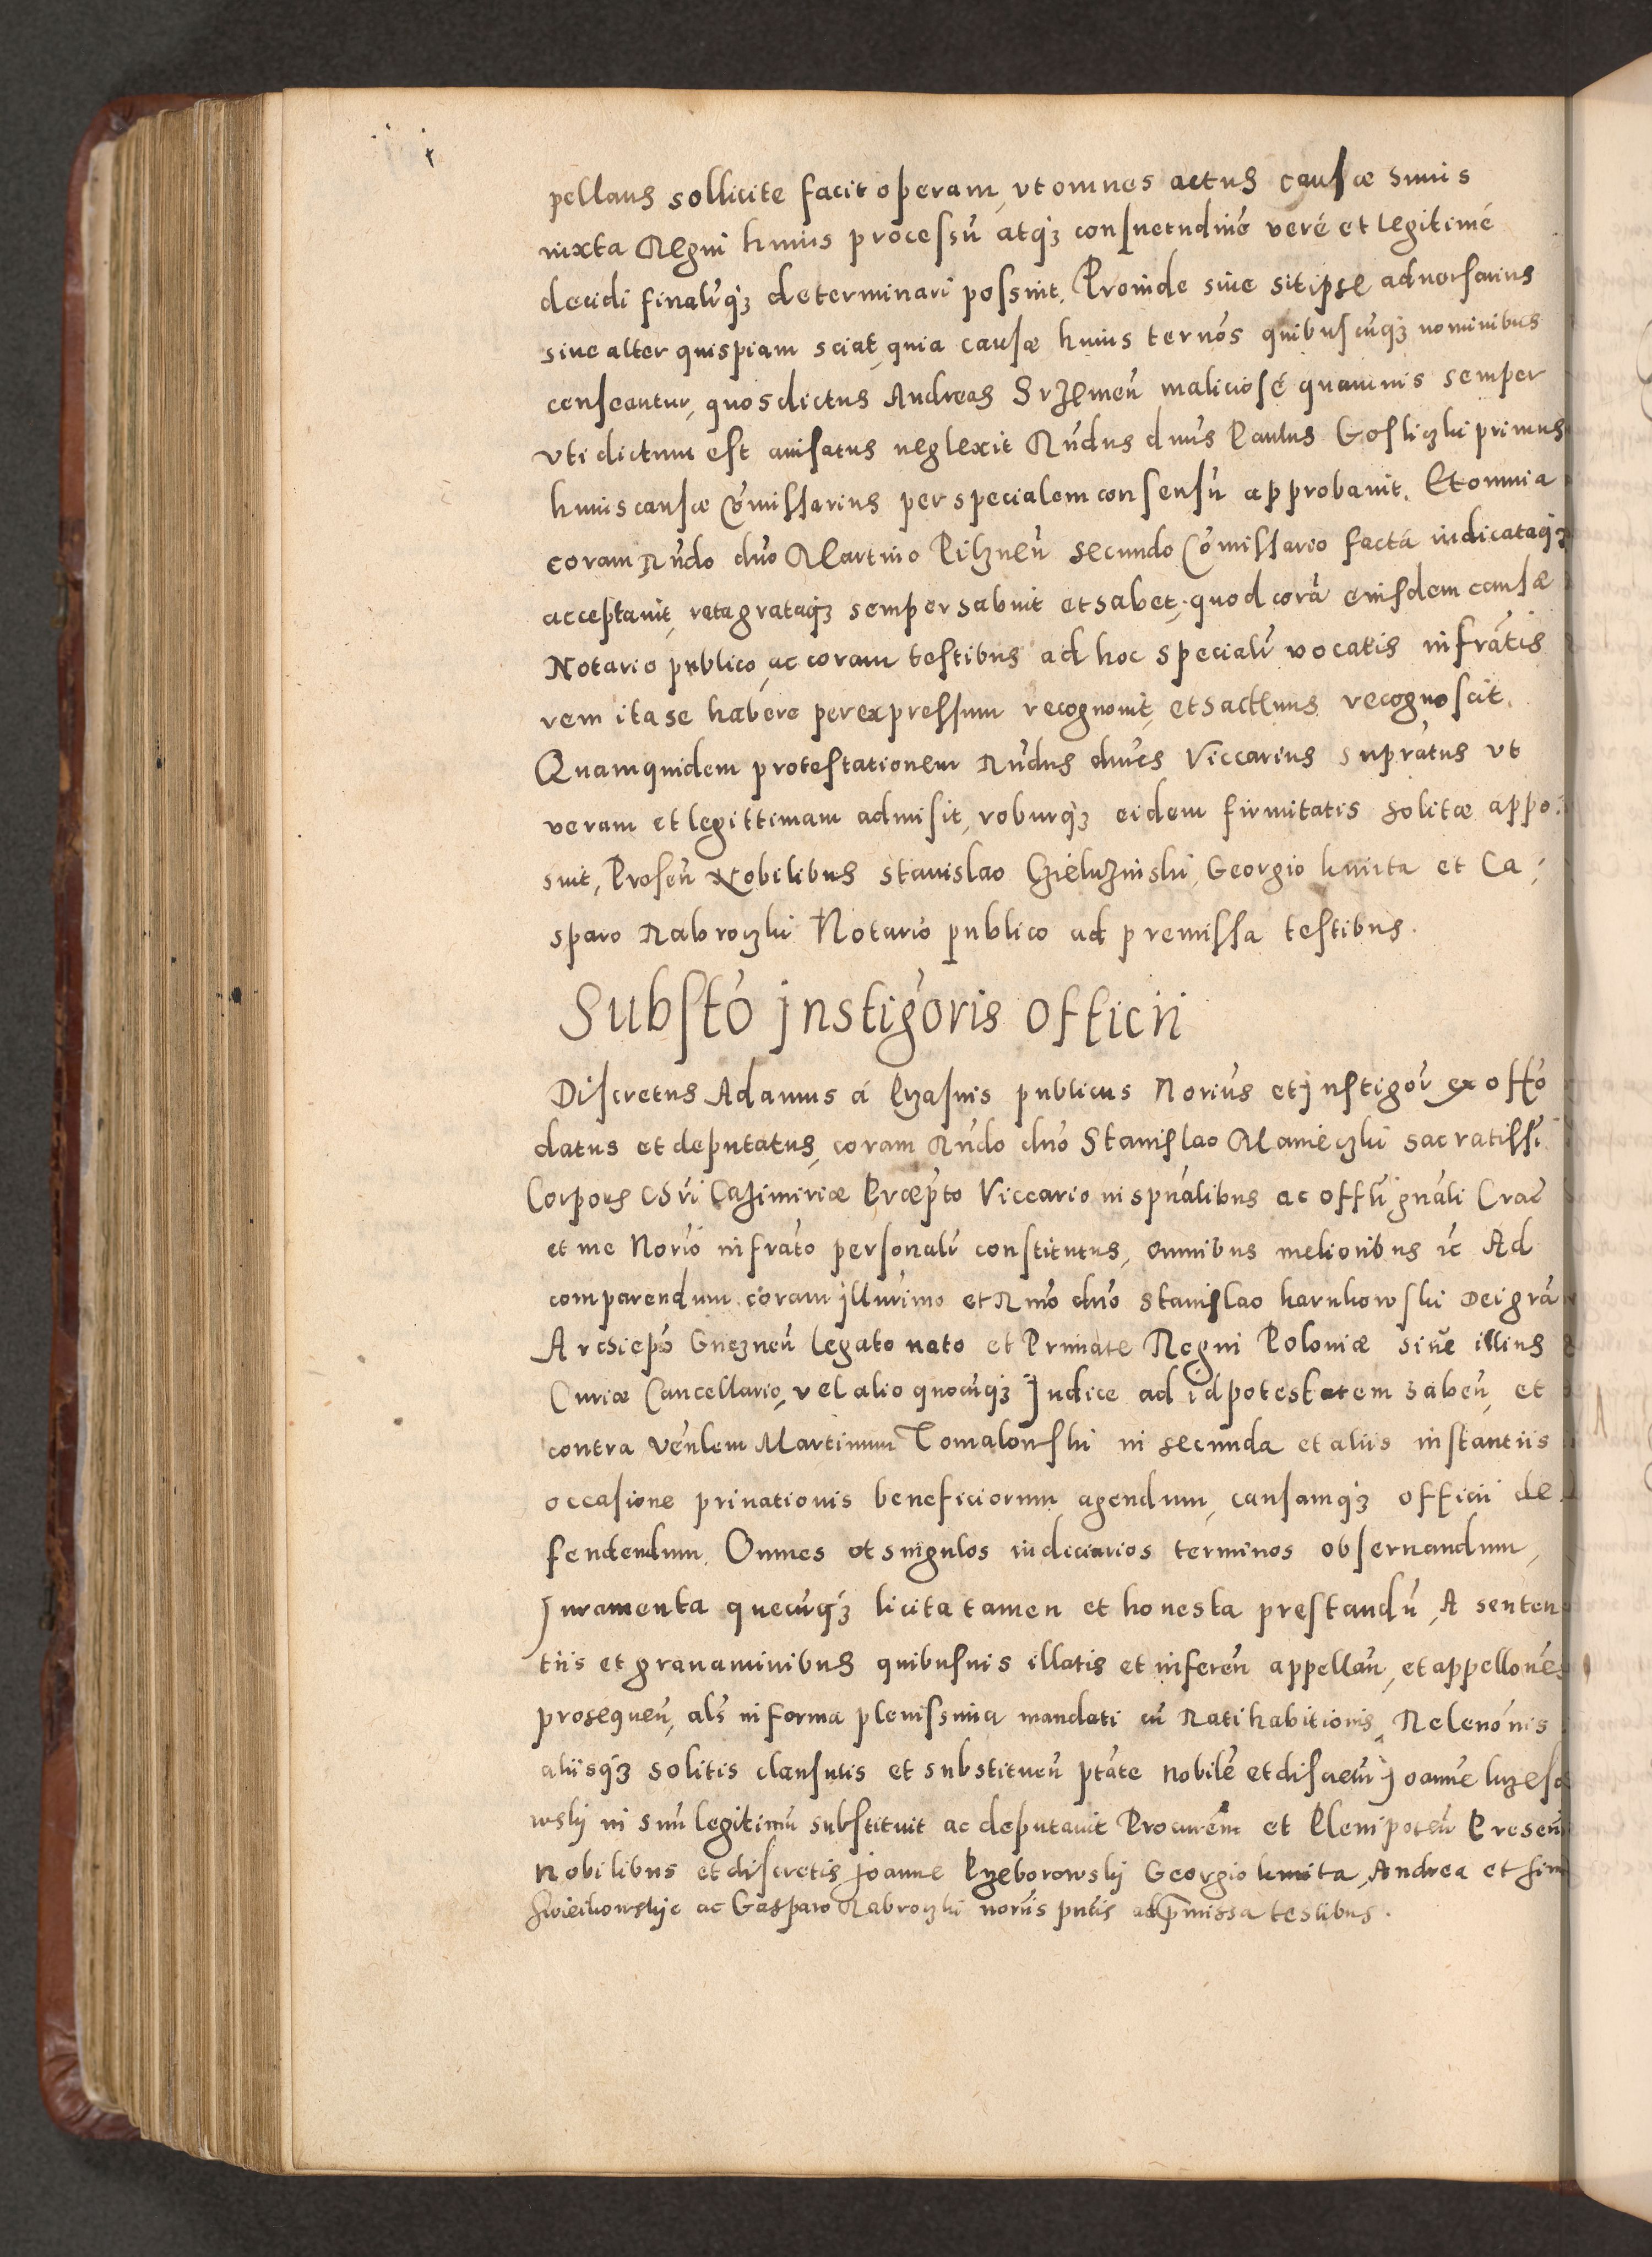 pellans sollicite facit operam, vt omnes actus causæ huius
iuxta Regni huius processū atqȝ consuetudinē veré et legitimé
decidi finalr̃qȝ determinari possint. Proinde siue sit ipse aduersarius
siue alter quispiam sciat, quia causæ huius ternōs quibuscūqȝ nominibus
censeantur, quos dictus Andreas maliciosé quamuis semper
vti dictum est auisatus neglexit Rñdus dnūs Paulus Goslicȝki primus
huius causæ Cōmissarius per specialem consensū approbauit. Et omnia
coram Rñdo dnō Martino Pilȝneñ secundo Cōmissario facta iudicataqȝ
acceptauit, rata grataqȝ semper habuit et habet, quod corā eiusdem causæ
Notario publico, ac coram testibus ad hoc specialr̃ vocatis infrātis
rem ita se habere per expressum recognouit, et hactenus recognoscit.
Quamquidem protestationem Rñdus dnūs Viccarius suprātus vt
veram et legittimam admisit, roburqȝ eidem firmitatis solitæ appo:
suit, Preseñ Nobilibus Stanislao Georgio kmita et Ca:
sparo Nabrocȝki Notario publico ad premissa testibus.
Substō Instigōris Officii
Discretus Adamus á publicus Noriūs et Instigōr ex offō
datus et deputatus, coram Rñdo dnō Stanislao Manieczki sacratissī
Corporis Chrī Caȝimiriæ Præptō Viccario in spūalibus ac Offlī gnāli Crac̃
et me Noriō infrātō personalr̃ constitutus, omnibus melioribus ic̃ Ad
comparendum coram Illurīmo et Rmō dnō Stanislao karnkowski Dei grā
Archiepō Gneȝneñ legato nato et Primate Regni Poloniæ siūe illius
Curiæ Cancellario, vel alio quocūqȝ Iudice ad id potestatem habeñ, et
contra Veñlem Martinum Tomalowski in secunda et aliis instantiis
occasione priuationis beneficiorum agendum, causamqȝ officii de
fendendum. Omnes et singulos iudiciarios terminos obseruandum,
Iuramenta quecūqȝ licita tamen et honesta prestandū, A senten
tiis et grauaminibus quibusuis illatis et infereñ appellañ, et appellonēs
prosequeñ, als̃ in forma plenissima mandati cū Ratihabitionis, Releuōnis
aliisqȝ solitis clausulis et substitueñ ptāte nobilē et discretū Ioanne
wskij in suū legitimū substituit ac deputauit Procurēm et Plenipoteñ Preseñ
Nobilibus et discretis Joanne Pȝeborowskij Georgio kmita, Andrea et
ac Gasparo Nabrocȝki noriīs pntīs ad p̄missa testibus.